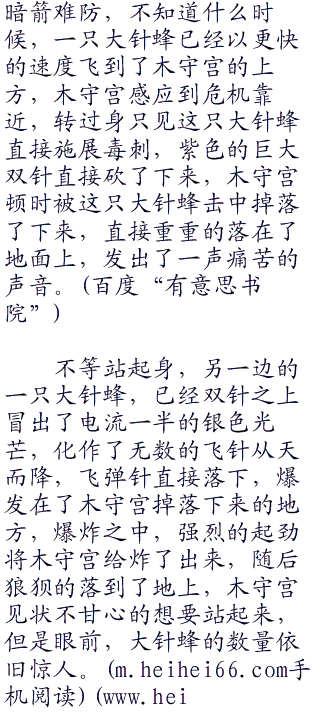 暗箭难防，不知道什么时
候，一只大针蜂已经以更快
的速度飞到了木守宫的上
方，木守宫感应到危机靠
近，转过身只见这只大针蜂
直接施展毒刺，紫色的巨大
双针直接砍了下来，木守宫
顿时被这只大针蜂击中掉落
了下来，直接重重的落在了
地面上，发出了一声痛苦的
声音。(百度“有意思书
院”)
不等站起身，另一边的
一只大针蜂，已经双针之上
冒出了电流一半的银色光
芒，化作了无数的飞针从天
而降，飞弹针直接落下，爆
发在了木守宫掉落下来的地
方，爆炸之中，强烈的起劲
将木守宫给炸了出来，随后
狼狈的落到了地上，木守宫
见状不甘心的想要站起来，
但是眼前，大针蜂的数量依
旧惊人。(m.heihei66.com手
机阅读)(www.hei